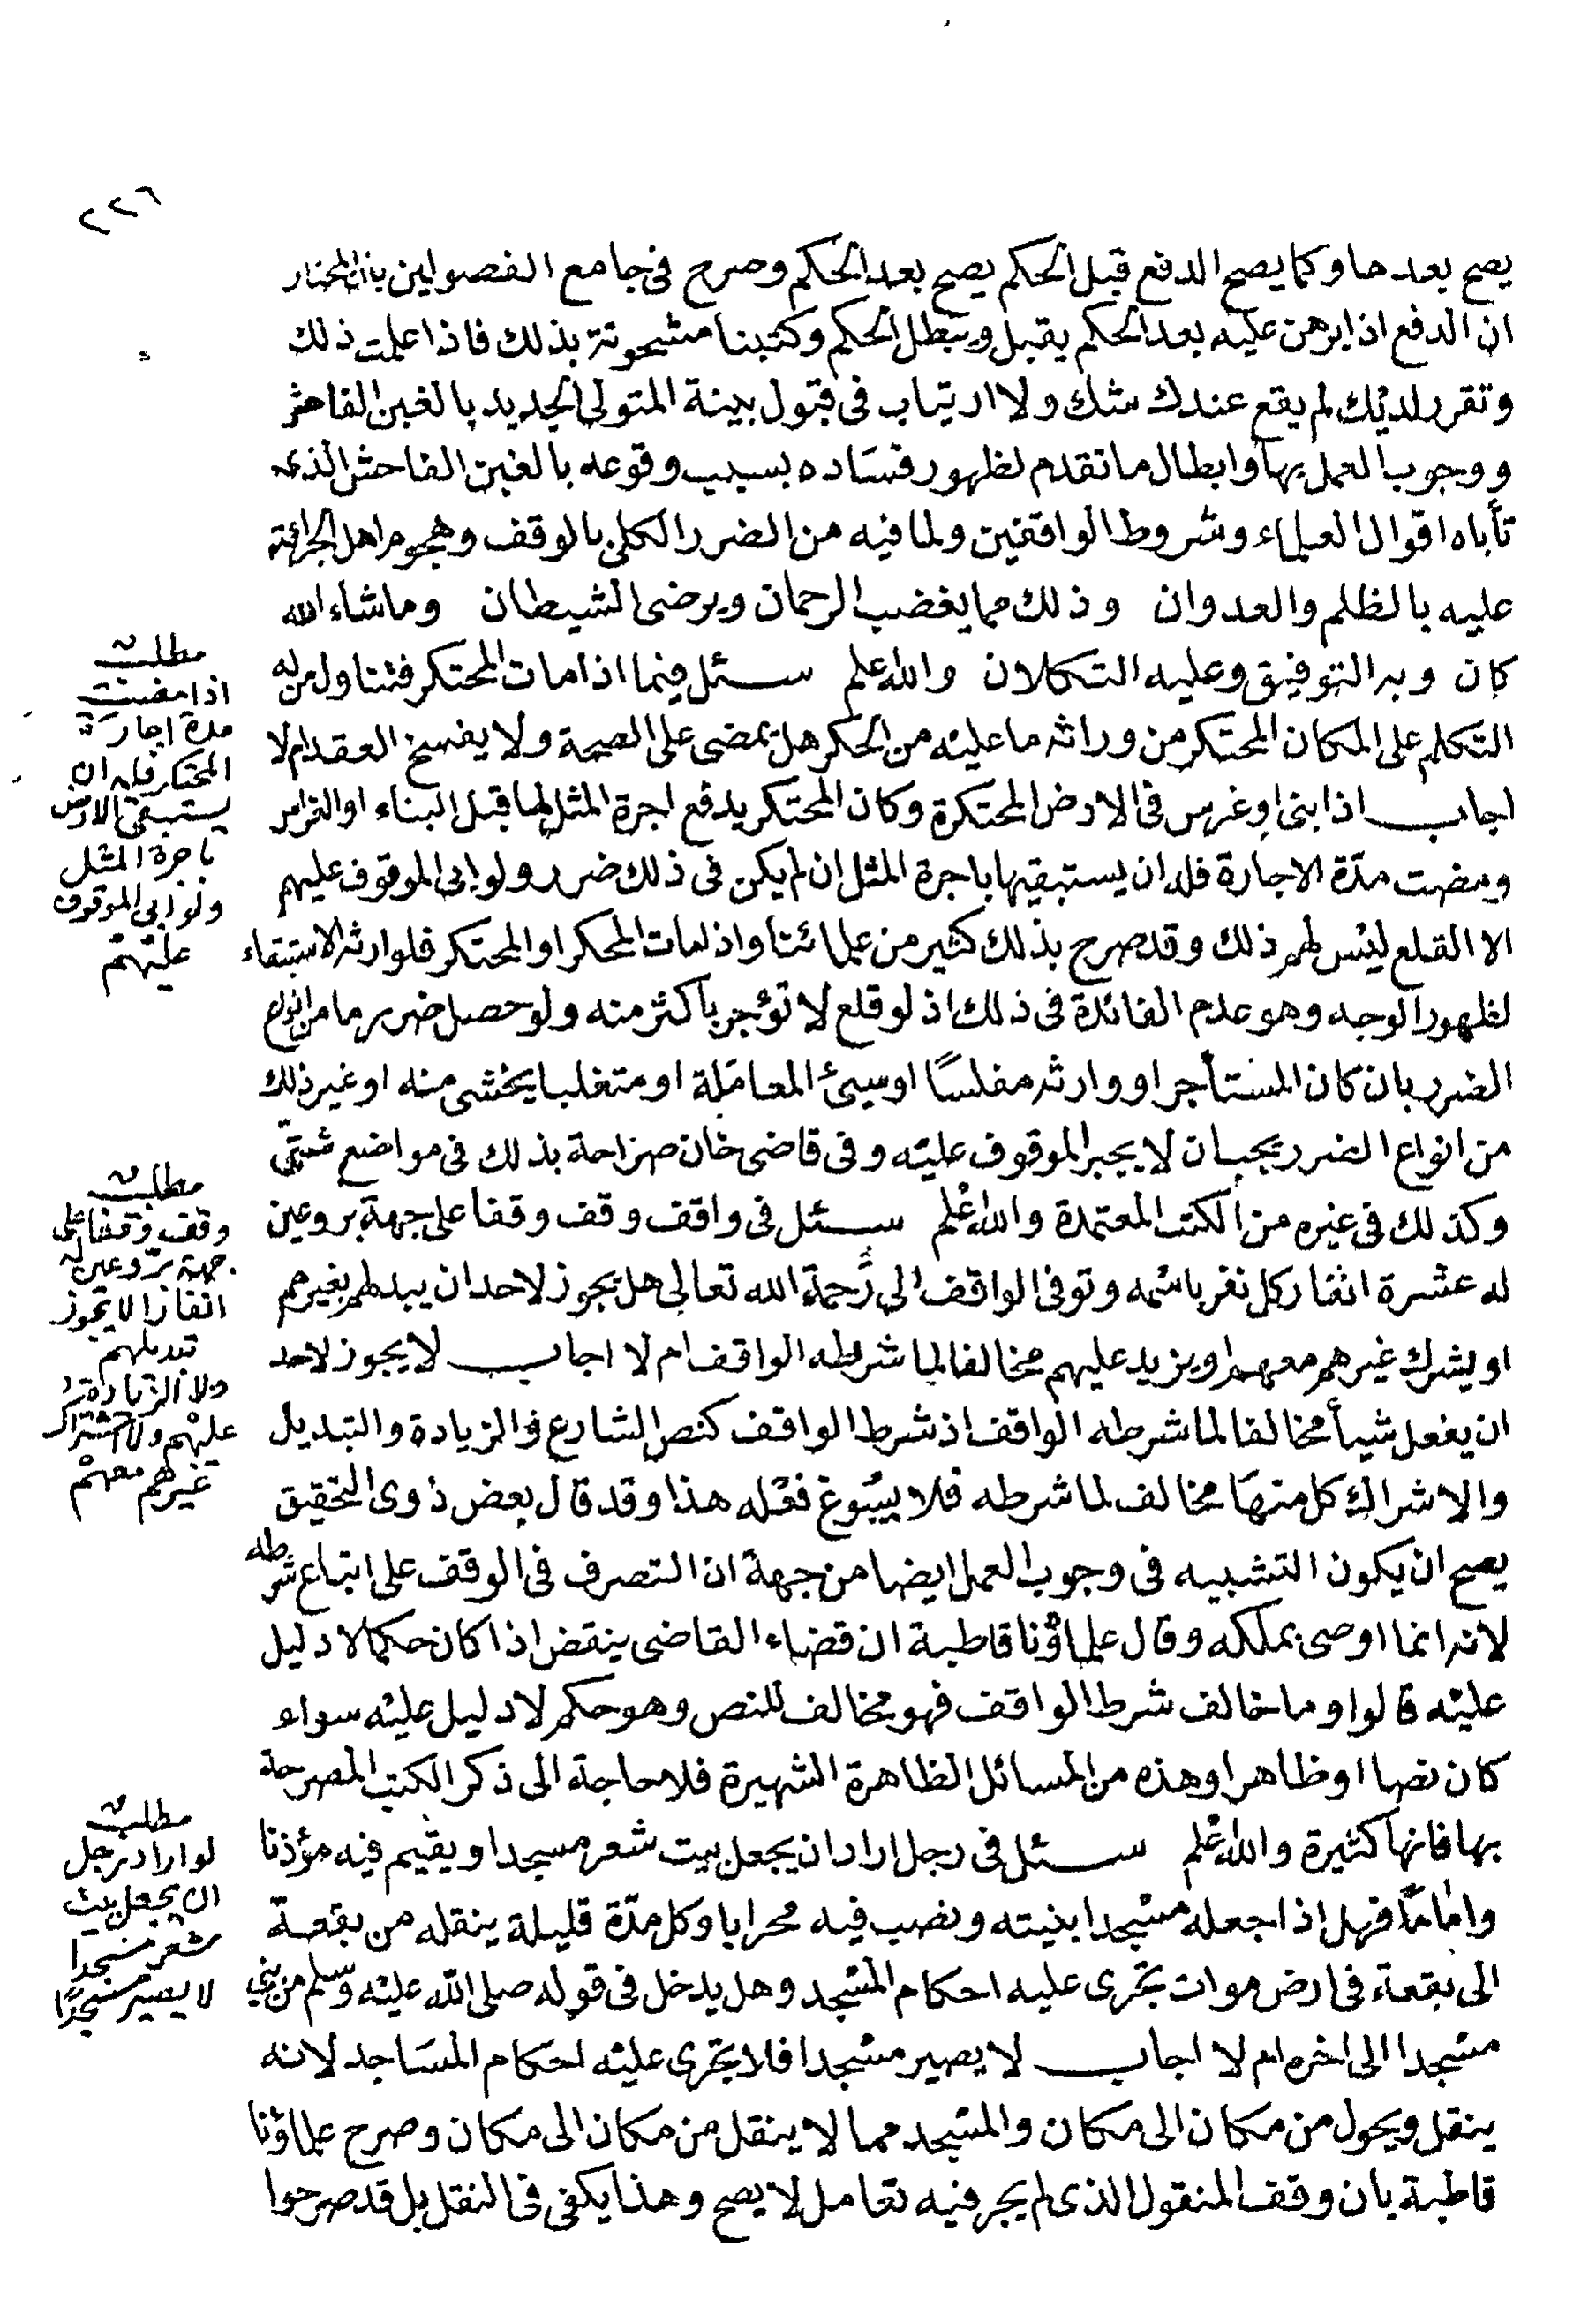 ٢٢٦
يصح بعدها وكما يصح الدفع قبل الحكم يصح بعد الحكم وصرح فى جامع الفصولين بان المختار
ان الدفع اذا برهن عليه بعد الحكم يقبل ويبطل الحكم وكتبنا مشحونة بذلك فاذا علمت ذلك
وتقرر لديك لم يقع عندك شك ولا ارتياب فى قبول بينة المتولى الجديد بالغبن الفاحش
ووجوب العمل بها وابطال ما تقدم لظهور فساده بسبب وقوعه بالغبن الفاحش الذى
تأباه اقوال العلماء وشروط الواقفين ولما فيه من الضرر الكلى بالوقف وهجوم اهل الجرائة
عليه بالظلم والعدوان وذلك مما يغضب الرحمان ويرضى الشيطان وما شاء الله
كان وبه التوفيق وعليه التكلان والله اعلم سئل فيما اذا مات المحتكر فتناول من له
التكلم على المكان المحتكر من وراثه ما عليه من الحكر هل يمضى على الصحة ولا يفسخ العقد ام لا
اجاب اذا بنى او غرس فى الارض المحتكرة وكان المحتكر يدفع اجرة المثل لها قبل البناء او الغراس
ومضت مدة الاجارة فله ان يستبقيها باجرة المثل ان لم يكن فى ذلك ضرر ولو ابى الموقوف عليهم
الا القلع ليس لهم ذلك وقد صرح بذلك كثير من علمائنا واذا مات المحكر او المحتكر فلوارثه الاستبقاء
لظهور الوجه وهو عدم الفائدة فى ذلك اذ لو قلع لا تؤجر باكثر منه ولو حصل ضرر ما من انواع
الضرر بان كان المستأجر او وارثه مفلسًا او سيئ المعاملة او متغلبا يخشى منه او غير ذلك
من انواع الضرر يجب ان لا يجبر الموقوف عليه وفى قاضى خان صراحة بذلك فى مواضع شتى
وكذلك فى غيره من الكتب المعتمدة والله اعلم سئل فى واقف وقف وقفا على جهة بر وعين
له عشرة انفار كل نفر باسمه وتوفى الواقف الى رحمة الله تعالى هل يجوز لاحد ان يبدلهم بغيرهم
او يشرك غيرهم معهم او يزيد عليهم مخالفا لما شرطه الواقف ام لا اجاب لا يجوز لاحد
ان يفعل شيأ مخالفا لما شرطه الواقف اذ شرط الواقف كنص الشارع فالزيادة والتبديل
والاشراك كل منها مخالف لما شرطه فلا يسوغ فعله هذا وقد قال بعض ذوى التحقيق
يصح ان يكون التشبيه فى وجوب العمل ايضا من جهة ان التصرف فى الوقف على اتباع شرطه
لانه انما اوصى بملكه وقال علماؤنا قاطبة ان قضاء القاضى ينقض اذا كان حكما لا دليل
عليه قالوا وما خالف شرط الواقف فهو مخالف للنص وهو حكم لا دليل عليه سواء
كان نصا او ظاهرا وهذه من المسائل الظاهرة الشهيرة فلا حاجة الى ذكر الكتب المصرحة
بها فانها كثيرة والله اعلم سئل فى رجل اراد ان يجعل بيت شعر مسجدا ويقيم فيه مؤذنا
واماما فهل اذا جعله مسجدا بنيته ونصب فيه محرابا وكل مدة قليلة ينقله من بقعة
الى بقعة فى ارض موات تجرى عليه احكام المسجد وهل يدخل فى قوله صلى الله عليه وسلم من بنى
مسجدا الى اخره ام لا اجاب لا يصير مسجدا فلا تجرى عليه احكام المساجد لانه
ينقل ويحول من مكان الى مكان والمسجد مما لا ينقل من مكان الى مكان وصرح علماؤنا
قاطبة بان وقف المنقول الذى لم يجر فيه تعامل لا يصح وهذا يكفى فى النقل بل قد صرحوا
مطلب
اذا مضت
مدة اجارة
المحتكر فله ان
يستبقى الارض
باجرة المثل
ولو ابى الموقوف
عليهم
مطلب
وقف وقفا على
جهة بر وعين له
انفارا لا يجوز
تبديلهم
ولا الزيادة
عليهم ولا اشتراك
غيرهم معهم
مطلب
لو اراد رجل
ان يجعل بيت
شعر مسجدا
لا يصير مسجدًا